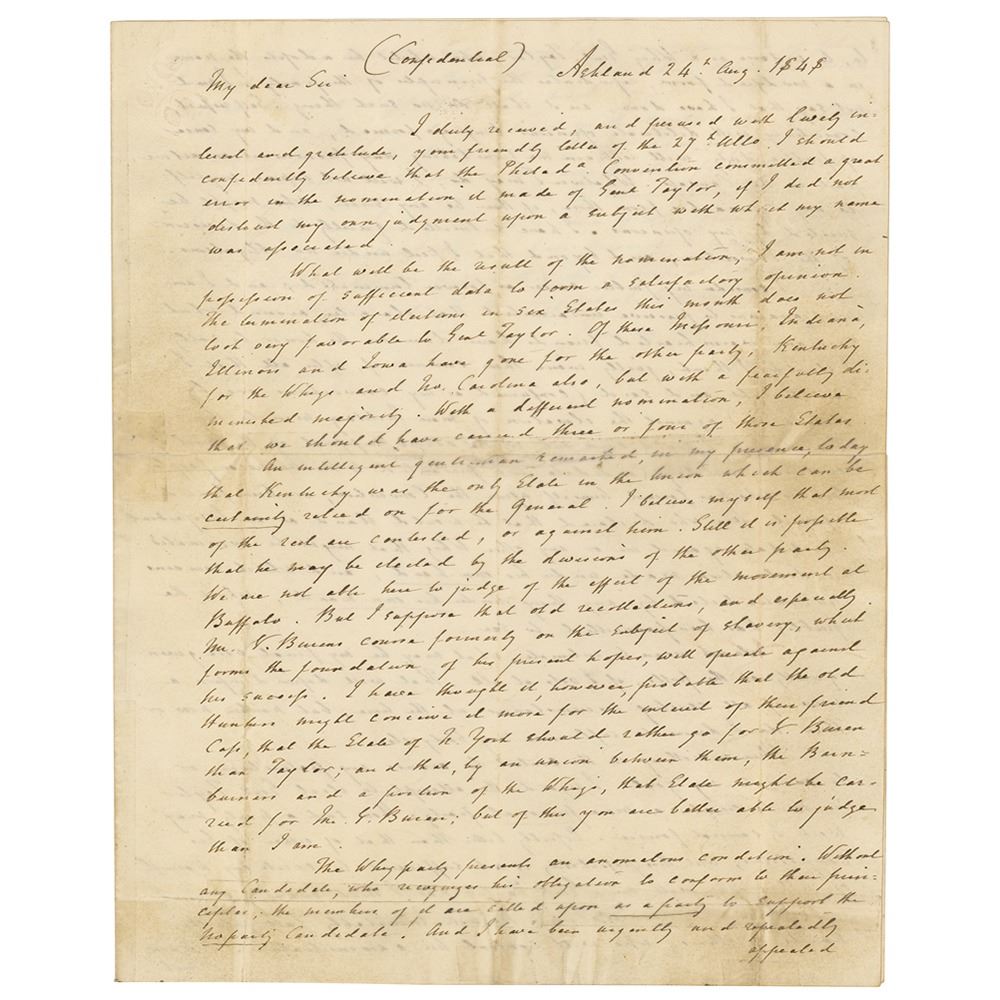 (Confidential)
Ashland 24th Aug. 1848
My dear Sir
I duly received, and perused with lively in-
terest and gratitude, your friendly letter of the 27th Ulto. I should
confidently believe that the Philada. Convention committed a great
error in the nomination it made of Genl Taylor, if I did not
distrust my own judgment upon a subject with which my name
was associated.
What will be the result of the nomination, I am not in
possession of sufficient data to form a satisfactory opinion.
The termination of elections in six States this month does not
look very favorable to Genl Taylor. Of these Missouri, Indiana,
Illinois and Iowa have gone for the other party, Kentucky
for the Whigs and No. Carolina also, but with a fearfully di-
minished majority. With a different nomination, I believe
that we should have carried three or four of those States.
An intelligent gentleman remarked, in my presence, to day
that Kentucky was the only State in the Union which can be
certainly relied on for the General. I believe myself that most
of the rest are contested, or against him. Still it is possible
that he may be elected by the divisions of the other party.
We are not able here to judge of the effect of the movement at
Buffalo. But I suppose that old recollections, and especially
Mr. V. Burens course formerly on the subject of slavery, which
forms the foundation of his present hopes, will operate against
his success. I have thought it, however, probable that the old
Hunkers might conceive it more for the interest of their friend
Cass, that the State of N York should rather go for V. Buren
than Taylor; and that, by an union between them, the Barn-
burners and a portion of the Whigs, that State might be car-
ried for Mr. V. Buren; but of this you are better able to judge
than I am.
The Whig party presents an anomalous condition. Without
any Candidate, who recognizes his obligation to conform to their prin-
ciples, the members of it are called upon as a party to support the
no party Candidate. And I have been urgently and repeatedly
appealed